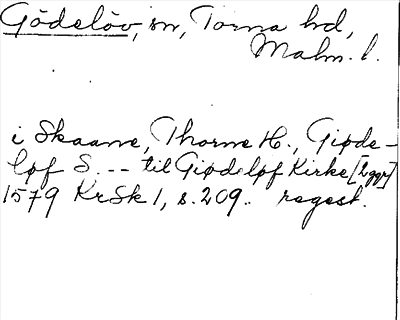 Gödelöv, sn, Torna hd,
Malm. l.
i Skaane, Thorne H., Giøde-
løf S. -- til Giødeløf Kirke [bygn]
1579 KrSk 1, s. 209. regest.